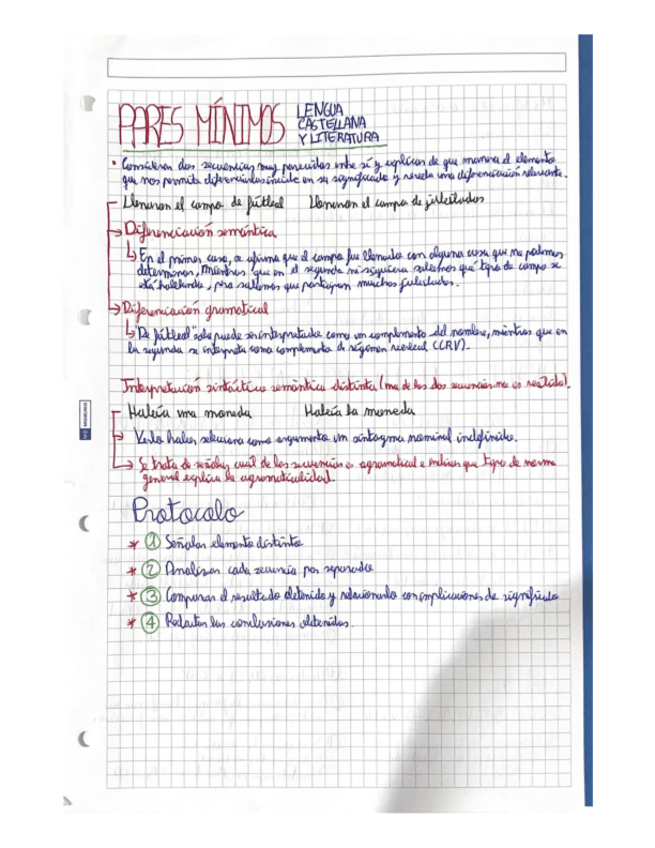 PARES MÍNIMOS LENGUA
CASTELLANA
Y LITERATURA
• Consideran dos secuencias muy parecidas entre sí y explican de que manera el elemento
que nos permite diferenciarlas incide en su significado y revela una diferenciación relevante.
Llenaron el campo de fútbol Llenaron el campo de futbolistas
Diferenciación semántica
En el primer caso, se afirma que el campo fue llenado con alguna cosa que no podemos
determinar, mientras que en el segundo ni siquiera sabemos qué tipo de campo se
está hablando, pero sabemos que participan muchos futbolistas.
Diferenciación gramatical
"De fútbol" solo puede ser interpretado como un complemento del nombre, mientras que en
la segunda se interpreta como complemento de régimen verbal (CRV).
Interpretación sintáctico semántica distinta (una de las dos secuencias no es válida).
Había una moneda Había la moneda
Verbo haber, selecciona como argumento un sintagma nominal indefinido.
Se trata de señalar cuál de las secuencias es agramatical e indicar que tipo de norma
general explica la agramaticalidad.
Protocolo
* 1 Señalar elemento distinto
* 2 Analizar cada secuencia por separado
* 3 Comparar el resultado obtenido y relacionarlo con implicaciones de significado
* 4 Redactar las conclusiones obtenidas.